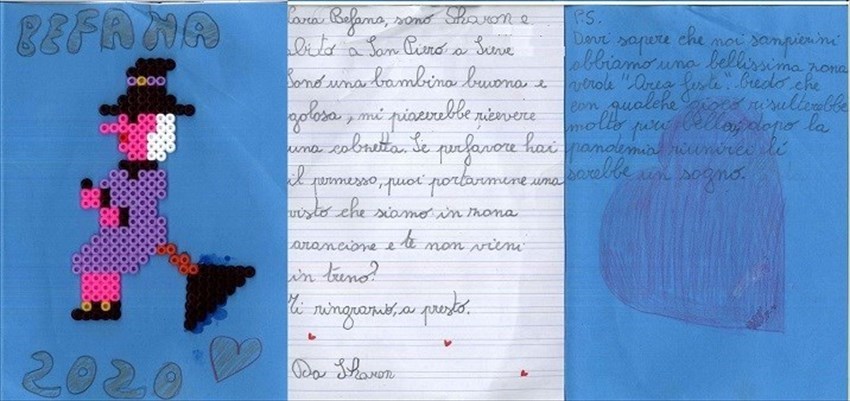 BEFANA
2020
Cara Befana, sono Sharon e
abito a San Piero a Sieve
Sono una bambina buona e
golosa, mi piacerebbe ricevere
una calzetta. Se perfavore hai
il permesso, puoi portarmene una
visto che siamo in zona
arancione e te non vieni
in treno?
Ti ringrazio, a presto.
Da Sharon
P.S.
Devi sapere che noi sanpierini
abbiamo una bellissima zona
verde "Area feste". Credo che
con qualche gioco risulterebbe
molto più bella, dopo la
pandemia riunirci lì
sarebbe un sogno.